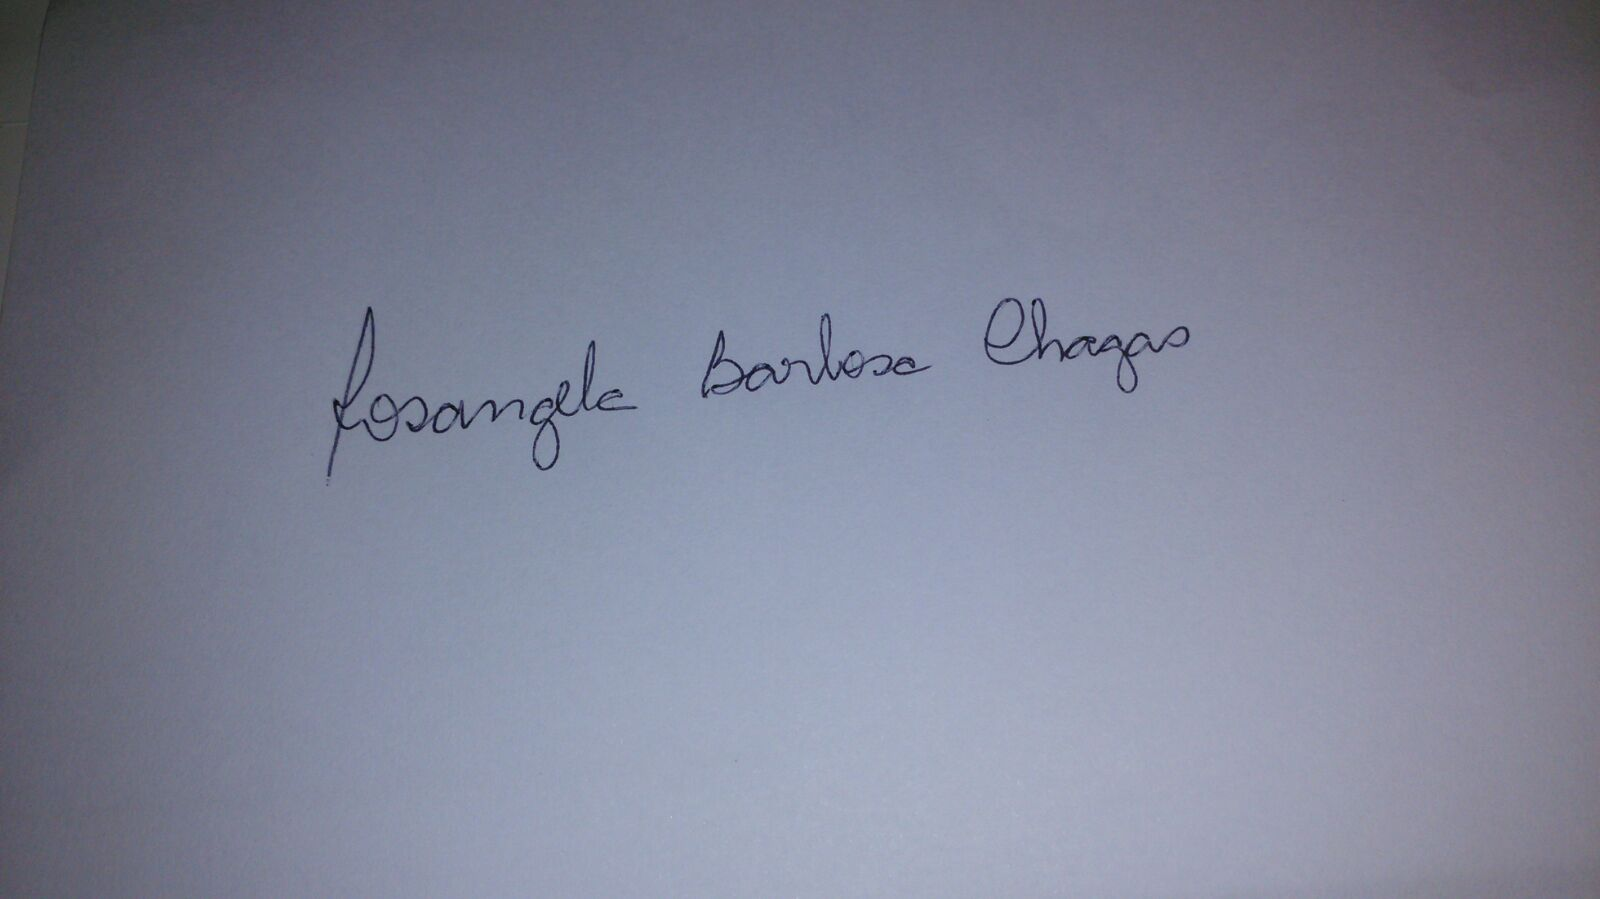 Rosangela Barbosa Chagas